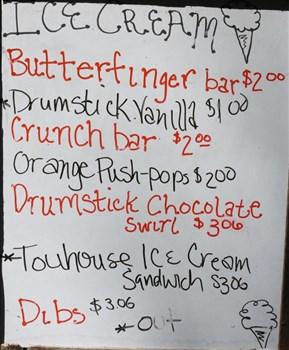 ICE CREAM
Butterfinger bar $2.00
*Drumstick Vanilla $1.00
Crunch bar $2.00
Orange Push-pops $2.00
Drumstick Chocolate
Swirl $3.06
*Touhouse Ice Cream
Sandwich $3.06
Dibs $3.06
*-out